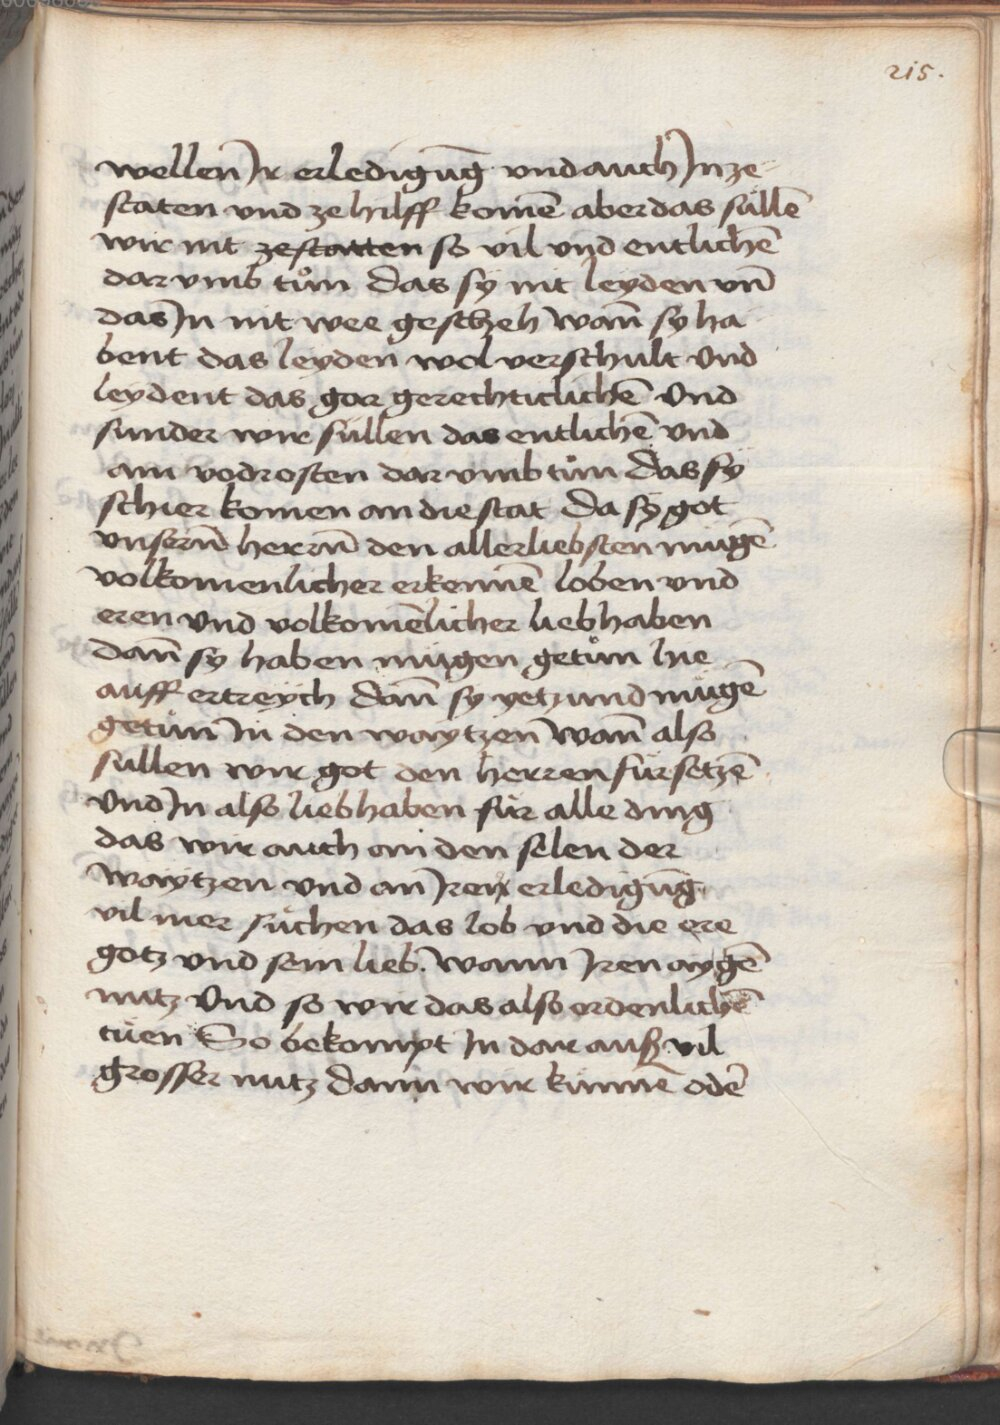 215.
wellen Ir erledigūg vnd auch In ze
staten vnd ze hilff komē aber das sullē
wir nit zestatten so vil vnd entlichē
dar vmb tůn das sy nit leyden vn̄
das In nit wee gescheh wan̄ sy ha
bent das leyden wol verschult Vnd
leydent das gar gerechticlichē Vnd
sunder wir sullen das entlichē vnd
am vodrosten dar vmb tůn das sy
schier komen an die stat Da sy got
vnsern̄ herrn̄ den allerliebsten mugē
volkomenlicher erkennē loben vnd
eren vnd volkomēlicher lieb haben
dan̄ sy haben mugen getůn hie
auff ertreych dan̄ sy yetzund mugē
getůn In den waytzen wan̄ also
sullen wir got den herren fursetzē
Vnd In also lieb haben fur alle ding
das wir auch an den selen der
waytzen vnd an Iren erledigūg
vil mer suchen das lob vnd die ere
gotz vnd sein lieb. wann Iren aygē
nutz Vnd so wir das also ordenlichē
tuen So bekompt In dar auß vil
grosser nutz dann wir kunnē odē